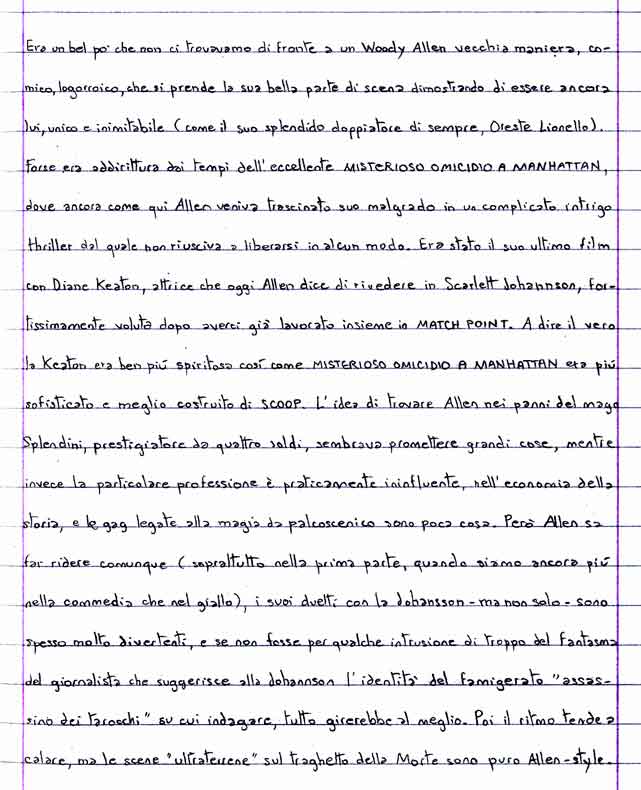 Era un bel po' che non ci trovavamo di fronte a un Woody Allen vecchia maniera, co-
mico, logorroico, che si prende la sua bella parte di scena dimostrando di essere ancora
lui, unico e inimitabile (come il suo splendido doppiatore di sempre, Oreste Lionello).
Forse era addirittura dai tempi dell'eccellente MISTERIOSO OMICIDIO A MANHATTAN,
dove ancora come qui Allen veniva trascinato suo malgrado in un complicato intrigo
thriller dal quale non riusciva a liberarsi in alcun modo. Era stato il suo ultimo film
con Diane Keaton, attrice che oggi Allen dice di rivedere in Scarlett Johannson, for-
tissimamente voluta dopo averci già lavorato insieme in MATCH POINT. A dire il vero
la Keaton era ben più spiritosa così come MISTERIOSO OMICIDIO A MANHATTAN era più
sofisticato e meglio costruito di SCOOP. L'idea di trovare Allen nei panni del mago
Splendini, prestigiatore da quattro soldi, sembrava promettere grandi cose, mentre
invece la particolare professione è praticamente ininfluente, nell'economia della
storia, e le gag legate alla magia da palcoscenico sono poca cosa. Però Allen sa
far ridere comunque (soprattutto nella prima parte, quando siamo ancora più
nella commedia che nel giallo), i suoi duetti con la Johansson - ma non solo - sono
spesso molto divertenti, e se non fosse per qualche intrusione di troppo del fantasma
del giornalista che suggerisce alla Johannson l'identità del famigerato "assas-
sino dei tarocchi" su cui indagare, tutto girerebbe al meglio. Poi il ritmo tende a
calare, ma le scene "ultraterrene" sul traghetto della Morte sono puro Allen-style.